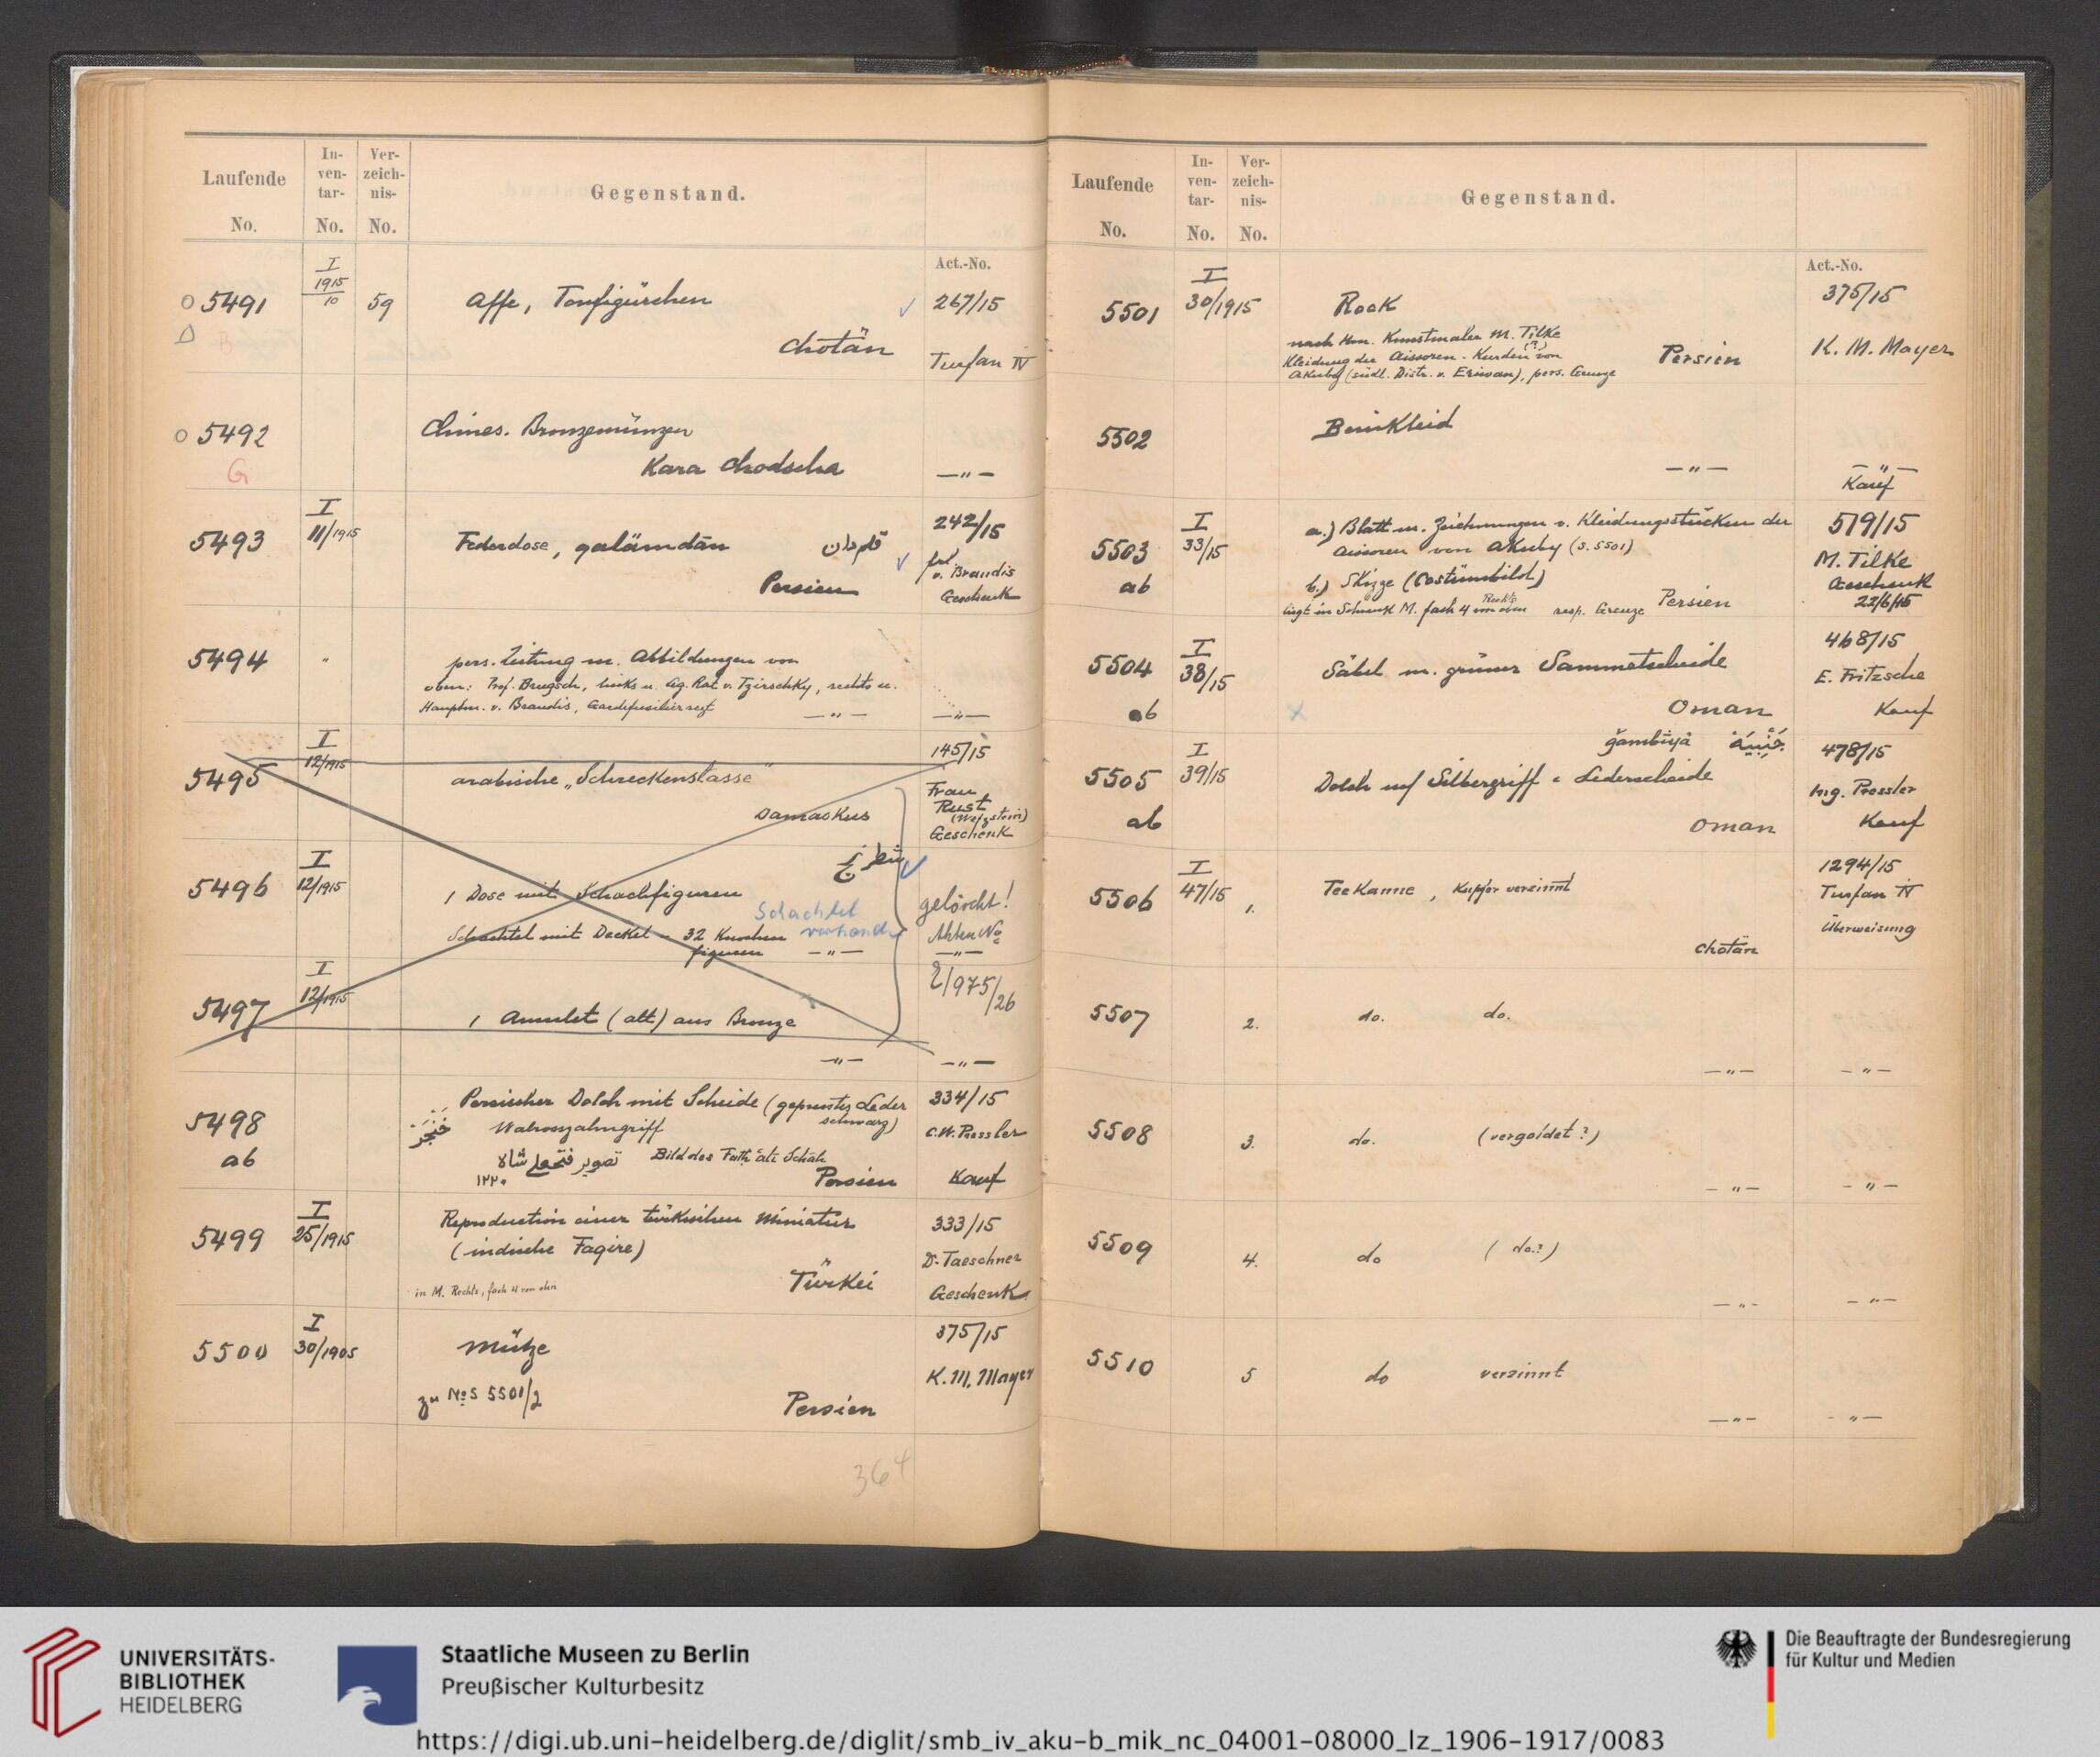 Laufende No.
In-ven-tar-No.
Ver-zeich-nis-No.
Gegenstand.
Act.-No.
5491
I 1915/10
59
Affe, Tonfigürchen
Chotän
267/15
Turfan IV
B
5492
G
Chines. Bronzemünzen
Kara Chodscha
— " —
5493
I 11/1915
Federdose, galämdān قلمدان
Persien
242/15
frl. v. Brandis
Geschenk
5494
"
pers. Zeitung m. Abbildungen von
oben: Prof. Brugsch, links u. Rat v. Tzirschky, rechts u.
Hauptm. v. Brandis, Gardefüsilierregt
— " —
— " —
5495
I 12/1915
arabische „Schreckenstasse"
Damaskus
145/15
Frau
Rust
(Wetzstein)
Geschenk
5496
I 12/1915
شطرنج
1 Dose mit Schachfiguren
Schachtel mit Deckel 32 Knochen
figuren — " —
Schachtel
vorhand.
gelöscht!
Akten No
— " —
5497
I 12/1915
1 Amulet (alt) aus Bronze
— " —
E/975/26
— " —
5498
ab
Persischer Dolch mit Scheide (gepresstes Leder
schwarz)
خنجر Walrosszahngriff
تصوير فتحعلي شاه Bild des Fatḥ ʿali Schah
١٢٢٠
Persien
334/15
C.W. Pressler
Kauf
5499
I 25/1915
Reproduction einer türkischen Miniatur
(indische Faqire)
in M. Rechts, fach 4 von oben
Türkei
333/15
Dr. Taeschner
Geschenk
5500
I 30/1905
Mütze
zu Nos 5501/2
Persien
375/15
K. M. Mayer
364
Laufende No.
In-ven-tar-No.
Ver-zeich-nis-No.
Gegenstand.
Act.-No.
5501
I 30/1915
Rock
nach Hrn. Kunstmaler M. Tilke
Kleidung der Aissoren-Kurden (?) von
Akuby (südl. Distr. v. Eriwan), pers. Grenze
Persien
375/15
K. M. Mayer
5502
Beinkleid
— " —
— " —
Kauf
5503
ab
I 33/15
a.) Blatt m. Zeichnungen v. Kleidungsstücken der
Aissoren von Akuby (s. 5501)
b.) Skizze (Costümbild)
liegt in Schrank M. fach 4 von oben Rechts resp. Grenze Persien
519/15
M. Tilke
Geschenk
22/6/15
5504
ab
I 38/15
Säbel m. grüner Sammetscheide
Oman
468/15
E. Fritzsche
Kauf
5505
ab
I 39/15
ǧambīyä جنبية
Dolch m/ Silbergriff u. Lederscheide
Oman
478/15
Hrg. Pressler
Kauf
5506
I 47/15
1.
Teekanne, Kupfer verzinnt
Chotän
1294/15
Turfan IV
Überweisung
5507
2.
do. do.
— " —
— " —
5508
3.
do. (vergoldet?)
— " —
— " —
5509
4.
do (do.?)
— " —
— " —
5510
5
do verzinnt
— " —
— " —
UNIVERSITÄTS-
BIBLIOTHEK
HEIDELBERG
Staatliche Museen zu Berlin
Preußischer Kulturbesitz
Die Beauftragte der Bundesregierung
für Kultur und Medien
https://digi.ub.uni-heidelberg.de/diglit/smb_iv_aku-b_mik_nc_04001-08000_lz_1906-1917/0083